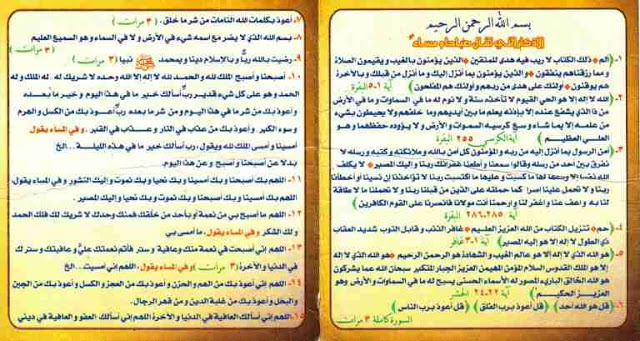 بسم الله الرحمن الرحيم
الأذكار التي تقال صباحا و مساءً
١- (الم ● ذلك الكتاب لا ريب فيه هدى للمتقين ● الذين يؤمنون بالغيب ويقيمون الصلاة
ومما رزقناهم ينفقون ● والذين يؤمنون بما أنزل إليك وما أنزل من قبلك وبالآخرة
هم يوقنون ● أولئك على هدى من ربهم وأولئك هم المفلحون) آية ١-٥ البقرة
٢- (الله لا إله إلا هو الحي القيوم لا تأخذه سنة ولا نوم له ما في السموات وما في الأرض
من ذا الذي يشفع عنده إلا بإذنه يعلم ما بين أيديهم وما خلفهم ولا يحيطون بشيء
من علمه إلا بما شاء وسع كرسيه السموات والأرض ولا يؤوده حفظهما وهو
العلي العظيم) آية الكرسي ٢٥٥ البقرة
٣- (آمن الرسول بما أنزل إليه من ربه والمؤمنون كل آمن بالله وملائكته وكتبه ورسله لا
نفرق بين أحد من رسله وقالوا سمعنا وأطعنا غفرانك ربنا وإليك المصير ● لا يكلف
الله نفسا إلا وسعها لها ما كسبت وعليها ما اكتسبت ربنا لا تؤاخذنا إن نسينا أو أخطأنا
ربنا ولا تحمل علينا إصرا كما حملته على الذين من قبلنا ربنا ولا تحملنا ما لا طاقة
لنا به واعف عنا واغفر لنا وارحمنا أنت مولانا فانصرنا على القوم الكافرين)
آية ٢٨٥-٢٨٦ البقرة
٤- (حم ● تنزيل الكتاب من الله العزيز العليم ● غافر الذنب وقابل التوب شديد العقاب
ذي الطول لا إله إلا هو إليه المصير) آية ١-٣ غافر
٥- (هو الله الذي لا إله إلا هو عالم الغيب والشهادة هو الرحمن الرحيم ● هو الله الذي لا إله
إلا هو الملك القدوس السلام المؤمن المهيمن العزيز الجبار المتكبر سبحان الله عما يشركون
هو الله الخالق البارىء المصور له الأسماء الحسنى يسبح له ما في السموات والأرض وهو
العزيز الحكيم) آية ٢٢-٢٤ الحشر
٦- (قل هو الله أحد) (قل أعوذ برب الفلق) (قل أعوذ برب الناس)
السورة كاملة ٣ مرات
٧- أعوذ بكلمات الله التامات من شر ما خلق. (٣ مرات)
٨- بسم الله الذي لا يضر مع اسمه شيء في الأرض ولا في السماء وهو السميع العليم
(٣ مرات)
٩- رضيت بالله ربا وبالإسلام دينا وبمحمد ﷺ نبيا (٣ مرات)
١٠- أصبحنا وأصبح الملك لله والحمد لله لا إله إلا الله وحده لا شريك له له الملك وله
الحمد وهو على كل شيء قدير رب أسألك خير ما في هذا اليوم وخير ما بعده
وأعوذ بك من شر ما في هذا اليوم ومن شر ما بعده رب أعوذ بك من الكسل والهرم
وسوء الكبر وأعوذ بك من عذاب في النار وعذاب في القبر. وفي المساء يقول
أمسينا وأمسى الملك لله ويقول، رب أسألك خير ما في هذه الليلة... الخ
بدلا عن أصبحنا وأصبح وعن هذا اليوم.
١١- اللهم بك أصبحنا وبك أمسينا وبك نحيا وبك نموت وإليك النشور وفي المساء يقول،
اللهم بك أمسينا وبك أصبحنا وبك نحيا وبك نموت وإليك المصير.
١٢- اللهم ما أصبح بي من نعمة أو بأحد من خلقك فمنك وحدك لا شريك لك فلك الحمد
ولك الشكر وفي المساء يقول، اللهم ما أمسى بي... الخ
١٣- اللهم إني أصبحت في نعمة منك وعافية وستر فأتم نعمتك علي وعافيتك وسترك
في الدنيا والآخرة (٣ مرات) وفي المساء يقول، اللهم إني أمسيت.. الخ
١٤- اللهم إني أعوذ بك من الهم والحزن وأعوذ بك من العجز والكسل وأعوذ بك من الجبن
والبخل وأعوذ بك من غلبة الدين ومن قهر الرجال.
١٥- اللهم إني أسألك العافية في الدنيا والآخرة اللهم إني أسألك العفو والعافية في ديني